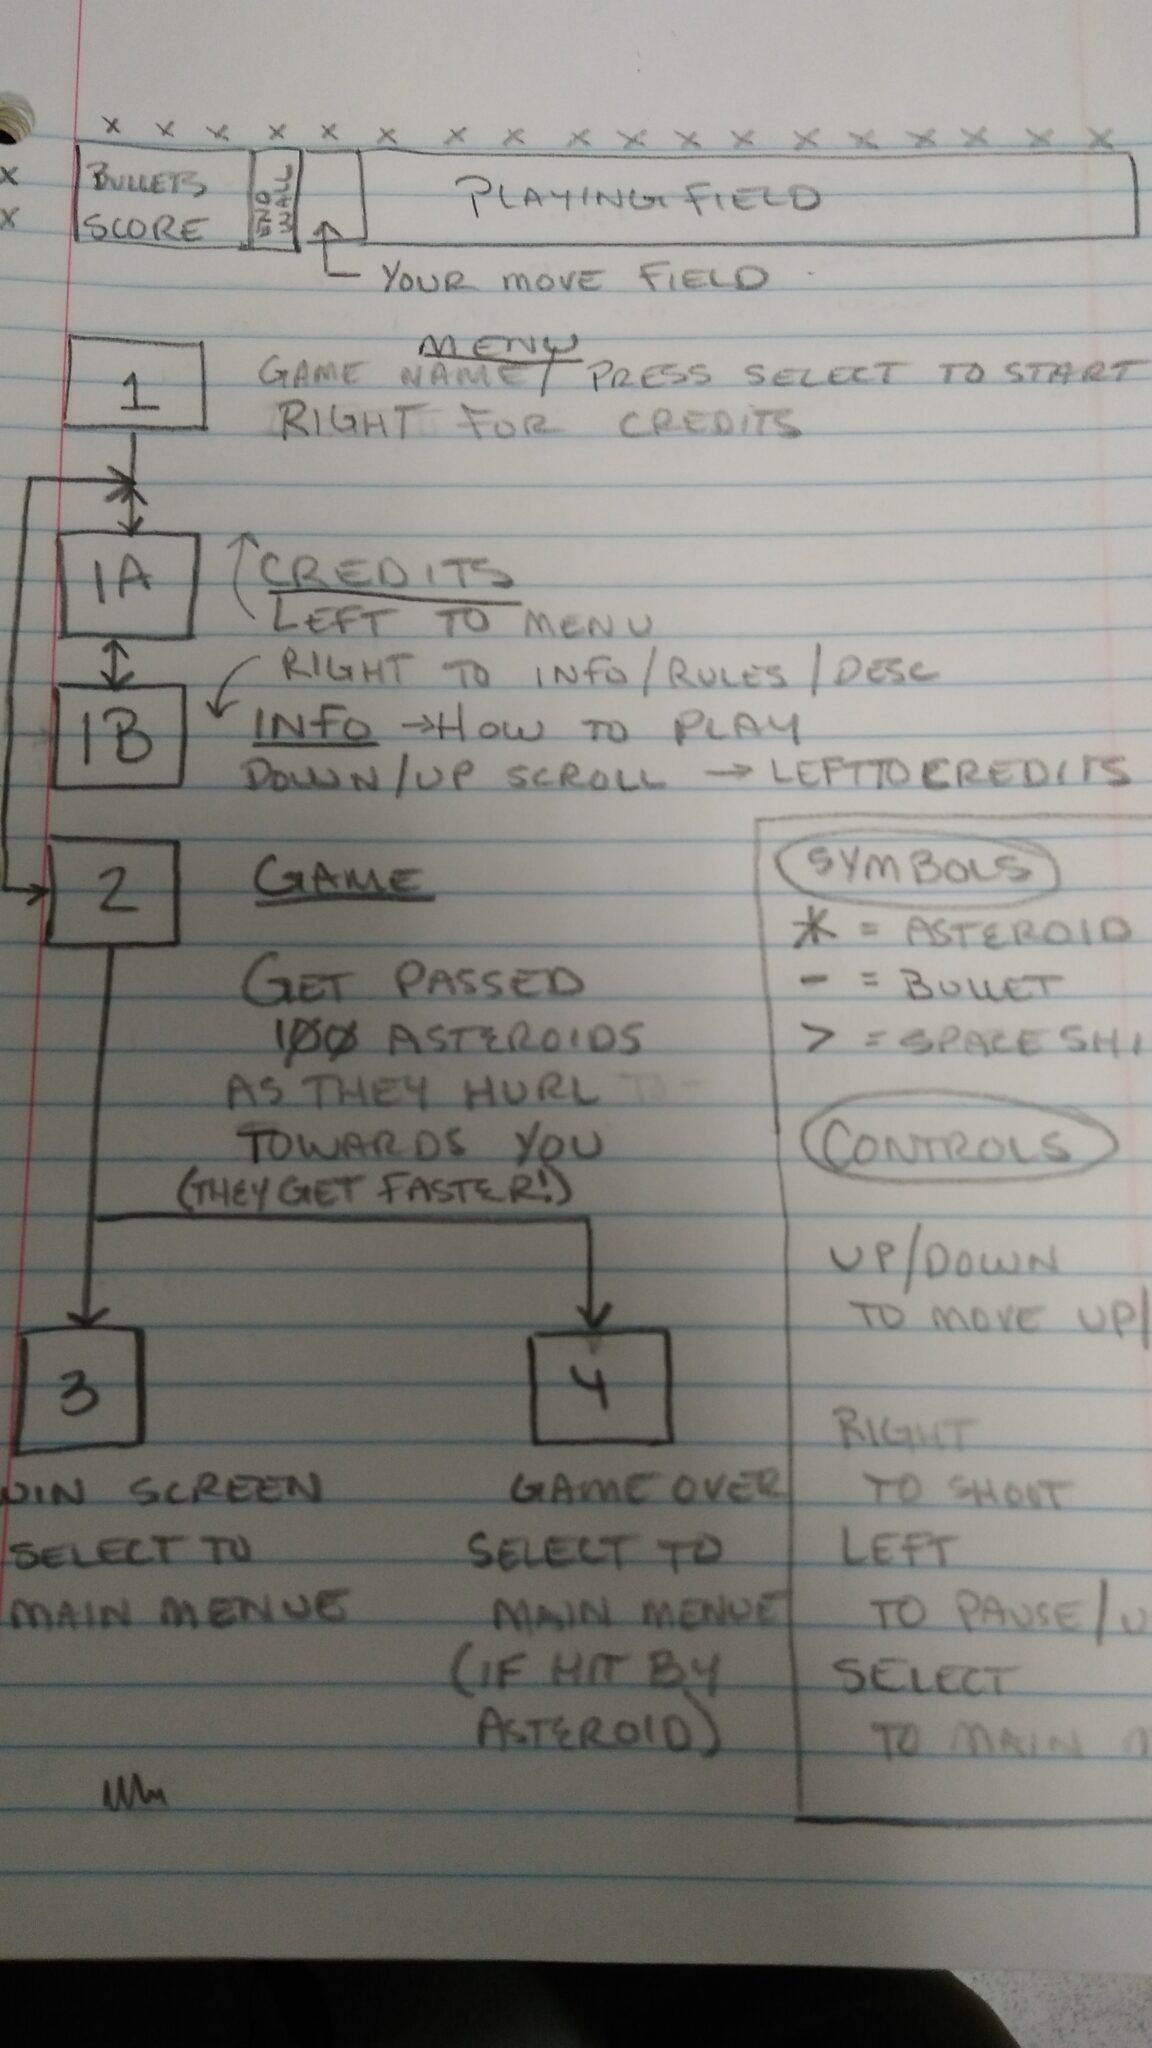 x x x x x x x x x x x x x x x x x x
x
x
BULLETS
SCORE
PLAYING FIELD
YOUR MOVE FIELD
1
MENU
GAME NAME / PRESS SELECT TO START
RIGHT FOR CREDITS
1A
CREDITS
LEFT TO MENU
RIGHT TO INFO/RULES/DESC
1B
INFO → HOW TO PLAY
DOWN/UP SCROLL → LEFT TO CREDITS
2
GAME
GET PASSED
100 ASTEROIDS
AS THEY HURL
TOWARDS YOU
(THEY GET FASTER!)
3
WIN SCREEN
SELECT TO
MAIN MENUE
4
GAME OVER
SELECT TO
MAIN MENUE
(IF HIT BY
ASTEROID)
SYMBOLS
* = ASTEROID
- = BULLET
> = SPACE SHI
CONTROLS
UP/DOWN
TO MOVE UP/
RIGHT
TO SHOOT
LEFT
TO PAUSE/U
SELECT
TO MAIN